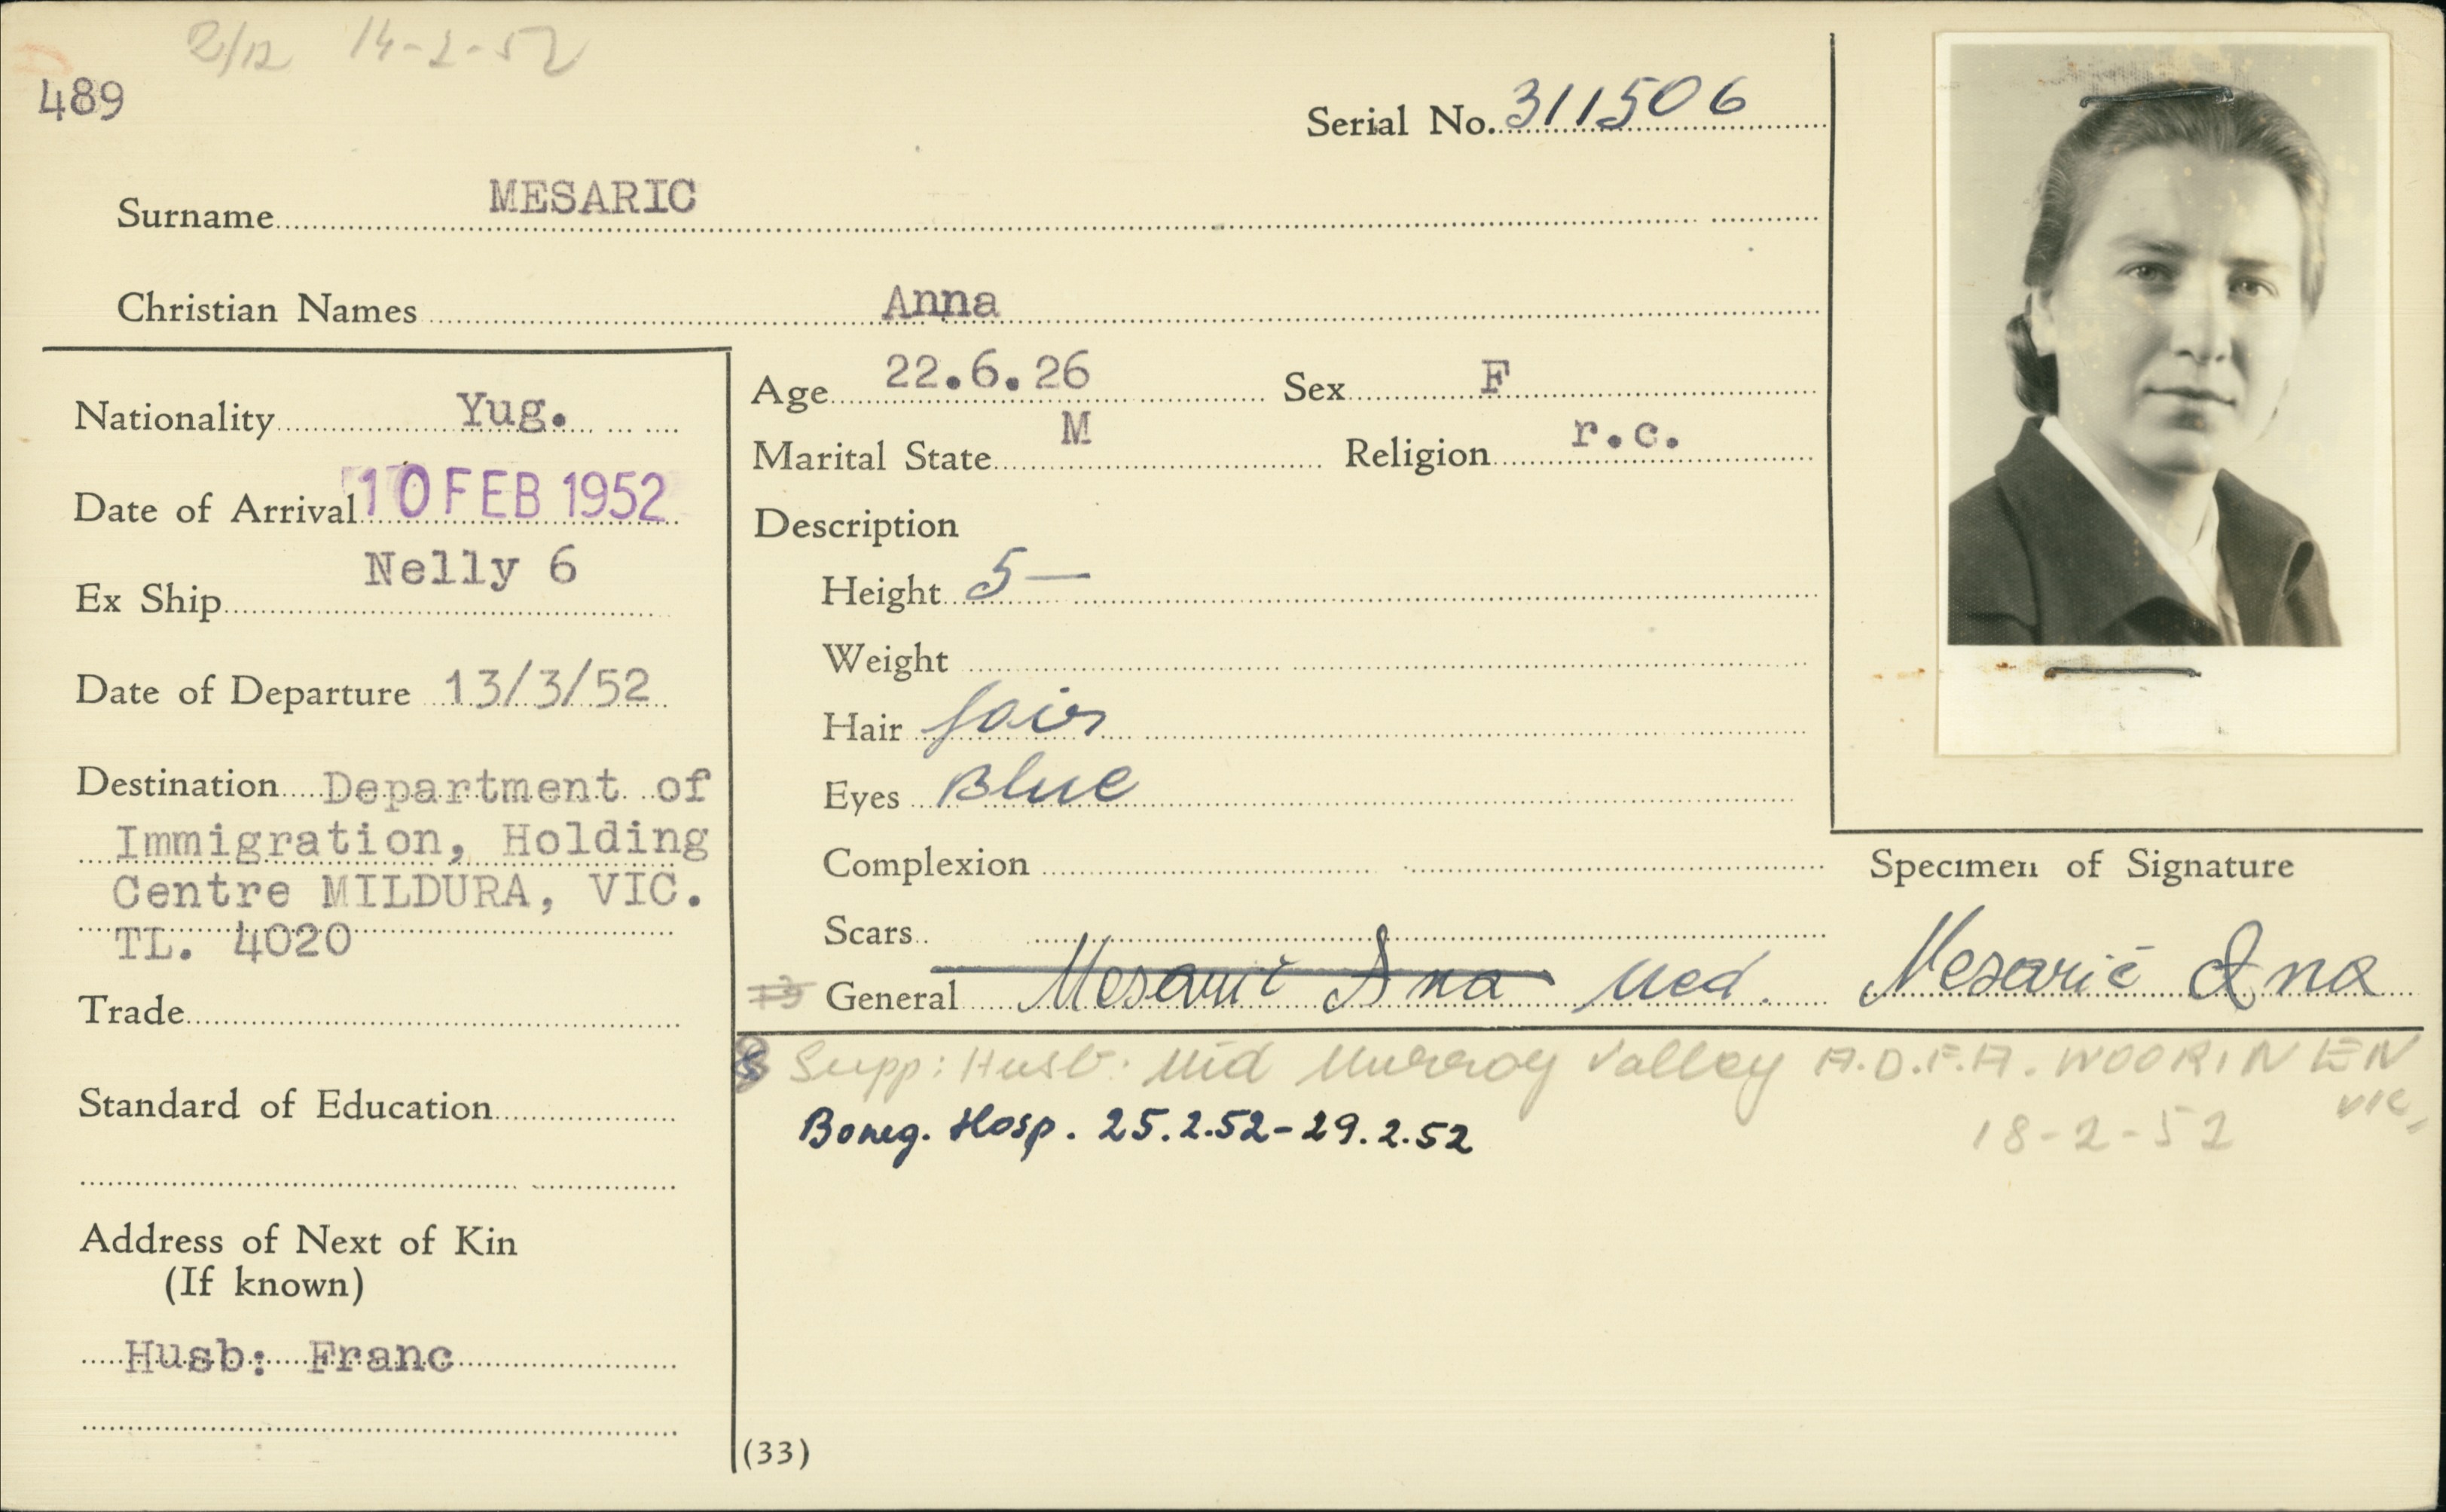 2/12 14-2-52
489
Serial No. 311506
Surname MESARIC
Christian Names Anna
Nationality Yug.
Date of Arrival 10 FEB 1952
Ex Ship Nelly 6
Date of Departure 13/3/52
Destination Department of
Immigration, Holding
Centre MILDURA, VIC.
TL. 4020
Trade
Standard of Education
Address of Next of Kin
(If known)
Husb: Franc
Age 22.6.26 Sex F
Marital State M Religion r.c.
Description
Height 5—
Weight
Hair fair
Eyes Blue
Complexion
Scars
General Mesarić Ana Med.
Specimen of Signature
Mesarić Ana
Supp: Husb. Mid Murray Valley A.D.F.A. WOORINEN
VIC.
18-2-52
Boneg. Hosp. 25.2.52-29.2.52
(33)